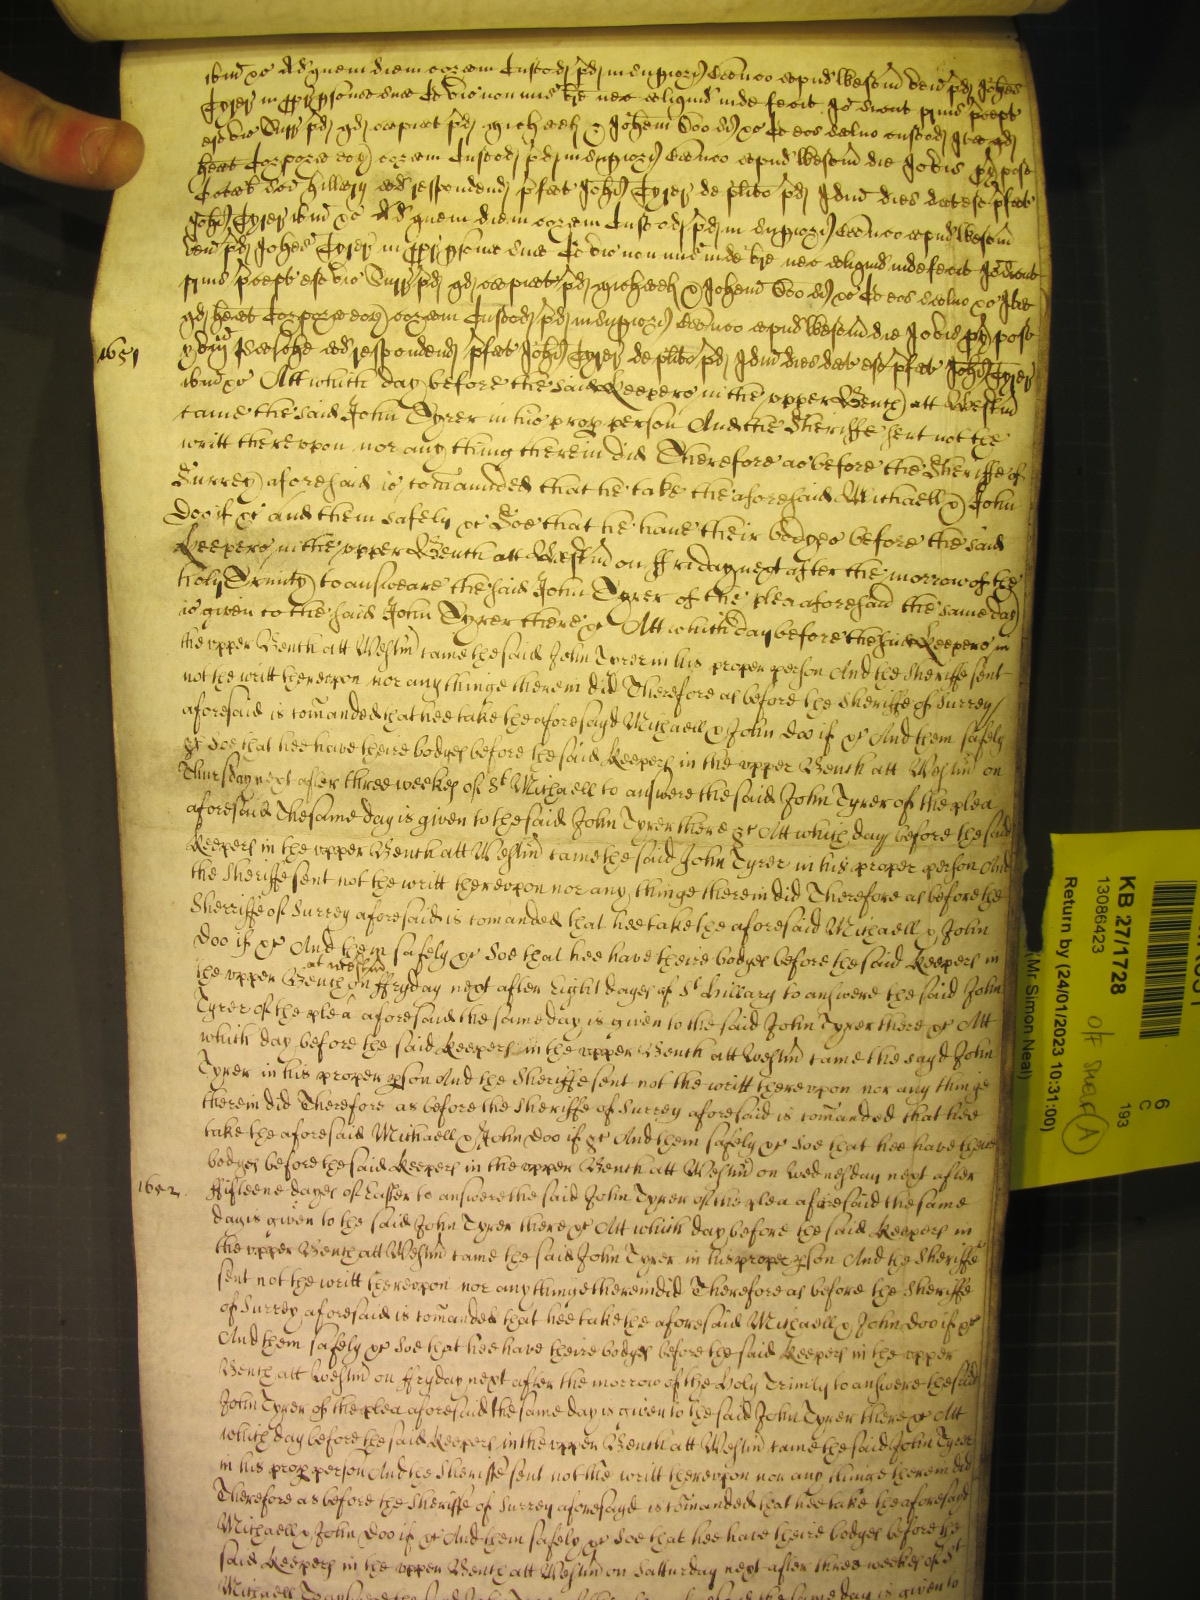 ibm &c Ad quem diem coram Custod p̄d in superiori Banco apud Westm̄ ven p̄d Johēs
Tyrer in ppr psona sua Et vic non mis bre nec aliquid inde fecit Jo sicut prius precept
est vic Surr p̄d qd capiat p̄d Michaele & Johem Doo si &c Et eos salvo custod Ita qd
heat Corpora eoȝ coram Custod p̄d in superiori Banco apud Westm̄ die Jovis px post
Octab Sci Hillarij ad respondend pfat Johi Tyrer de plito p̄d Idm dies dat est pfat
Johi Tyrer ibm &c Ad quem diem coram Custod p̄d in superiori Banco apud Westm̄
ven p̄d Johes Tyrer in ppr psona sua Et vic non mis inde bre nec aliquid inde fecit Jo sicut
prius precept est vic Surr p̄d qd capiat p̄d Michaele & Johem Doo si &c Et eos salvo &c Ita
qd heat Corpora eoȝ coram Custod p̄d in superiori Banco apud Westm̄ die Jovis px post
1651 Pasche ad respondend pfat Johi Tyrer de plito p̄d Idm dies dat est pfat Johi Tyrer
ibm &c Att which day before the said Keepers in the upper Bench att Westm̄
came the said John Tyrer in his prop person And the Sheriffe sent not the
writt thereupon nor any thing therein did Therefore as before the Sheriffe of
Surrey aforesaid is comaunded that he take the aforesaid Michaell & John
Doo if &c and them safely &c Soe that he have their bodyes before the said
Keepers in the upper Bench att Westm̄ on Ffriday next after the morrow of the
holy Trinity to answeare the said John Tyrer of the plea aforesaid the same day
is given to the said John Tyrer there &c Att which day before the said Keepers in
the upper Bench att Westm̄ came the said John Tyrer in his proper person And the Sheriffe sent
not the writt thereupon nor any thinge therein did Therefore as before the Sheriffe of Surrey
aforesaid is comanded that hee take the aforesayd Michaell & John Doo if &c And them safely
&c Soe that hee have theire bodyes before the said Keepers in the upper Bench att Westm̄ on
Thursday next after three weekes of St Michaell to answere the said John Tyrer of the plea
aforesaid The same day is given to the said John Tyrer there &c Att which day before the said
Keepers in the upper Bench att Westm̄ came the said John Tyrer in his proper person And
the Sheriffe sent not the writt thereupon nor any thinge therein did Therefore as before the
Sherriffe of Surrey aforesaid is comanded that hee take the aforesaid Michaell & John
Doo if &c And them safely &c Soe that hee have theire bodyes before the said Keepers in
the upper Bench at Westm̄ on ffryday next after Eight dayes of St Hillary to answere the said John
Tyrer of the plea aforesaid the same day is given to the said John Tyrer there &c Att
which day before the said Keepers in the upper Bench att Westm̄ came the sayd John
Tyrer in his proper pson And the Sheriffe sent not the writt thereupon nor any thinge
therein did Therefore as before the Sheriffe of Surrey aforesaid is comanded that hee
take the aforesaid Michaell & John Doo if &c And them safely &c Soe that hee have theire
bodyes before the said Keepers in the upper Bench att Westm̄ on Wednesday next after
1652 ffifteene dayes of Easter to answere the said John Tyrer of the plea aforesaid the same
day is given to the said John Tyrer there &c Att which day before the said Keepers in
the upper Bench att Westm̄ came the said John Tyrer in his proper pson And the Sheriffe
sent not the writt thereupon nor any thinge therein did Therefore as before the Sheriffe
of Surrey aforesaid is comanded that hee take the aforesaid Michaell & John Doo if &c
And them safely &c Soe that hee have theire bodyes before the said Keepers in the upper
Bench att Westm̄ on ffryday next after the morrow of the Holy Trinity to answere the said
John Tyrer of the plea aforesaid the same day is given to the said John Tyrer there &c Att
which day before the said Keepers in the upper Bench att Westm̄ came the said John Tyrer
in his prop person And the Sheriffe sent not the writt thereupon nor any thinge therein did
Therefore as before the Sheriffe of Surrey aforesayd is comanded that hee take the aforesayd
Michaell & John Doo if &c And them safely &c Soe that hee have theire bodyes before the
said Keepers in the upper Bench att Westm̄ on Satturday next after three weekes of St
Michaell To answere the said John Tyrer the same day is given to
KB 27/1728
13086423
Return by (24/01/2023 10:31:00)
(Mr Simon Neal)
off shelf A
6
C
193